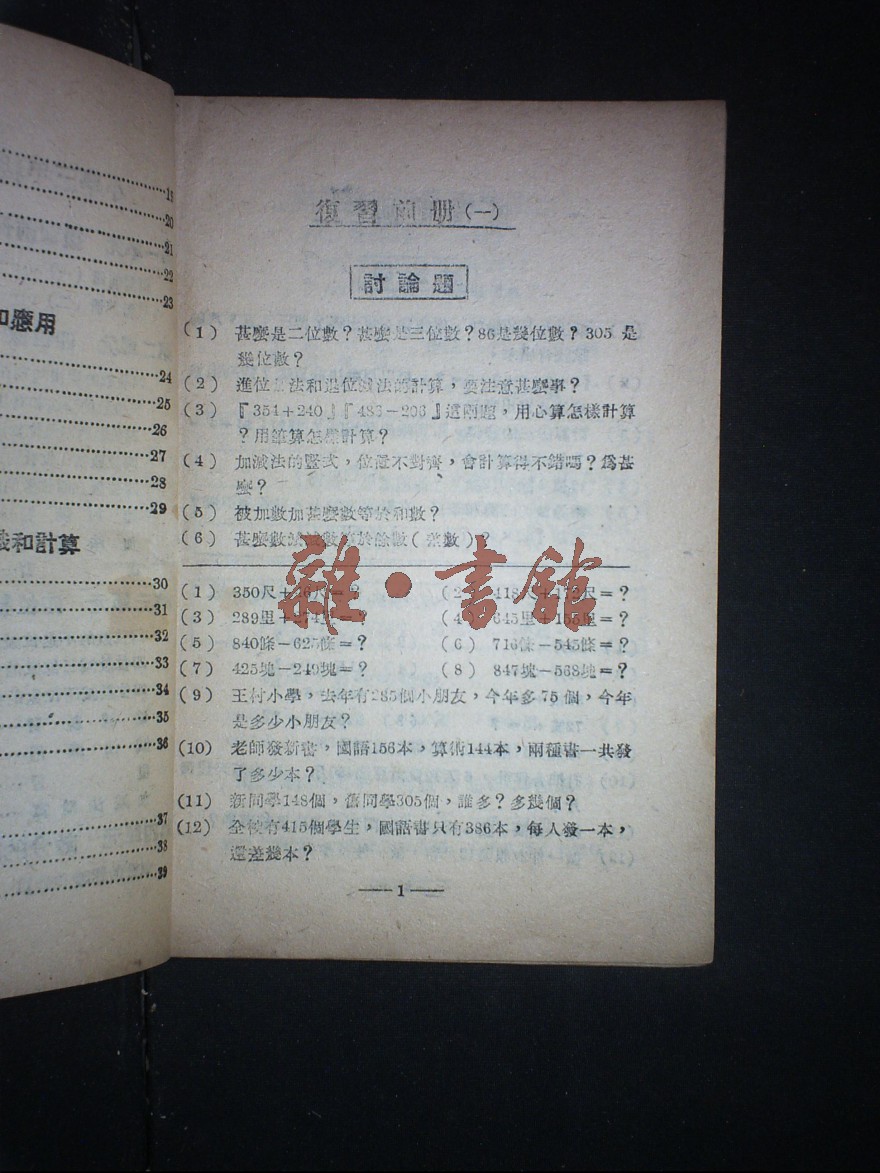 18
20
21
22
23
和應用
24
25
26
27
28
29
和計算
30
31
32
33
34
35
36
37
38
39
復習前册(一)
討論題
(1) 甚麼是二位數?甚麼是三位數?86是幾位數?305是
幾位數?
(2) 進位 法和退位減法的計算,要注意甚麼事?
(3) 『354+240』『486-206』這兩題,用心算怎樣計算
?用筆算怎樣計算?
(4) 加減法的豎式,位置不對齊,會計算得不錯嗎?爲甚
麼?
(5) 被加數加甚麼數等於和數?
(6) 甚麼數減減數等於餘數(差數)?
(1) 350尺+ 6尺=?
(2) 418尺+172尺=?
(3) 289里+274里=?
(4) 645里+155里=?
(5) 840條-625條=?
(6) 716條-545條=?
(7) 425塊-249塊=?
(8) 847塊-568塊=?
(9) 王村小學,去年有285個小朋友,今年多75個,今年
是多少小朋友?
(10) 老師發新書,國語156本,算術144本,兩種書一共發
了多少本?
(11) 新同學148個,舊同學305個,誰多?多幾個?
(12) 全校有415個學生,國語書只有386本,每人發一本,
還差幾本?
雜·書館
—1—